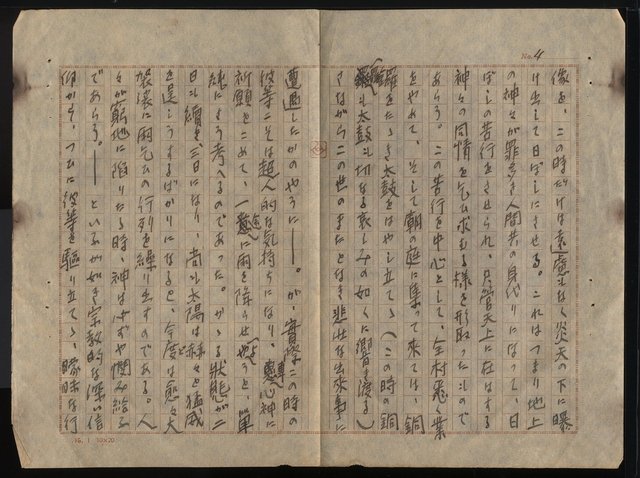 No. 4
像を、この時だけは遠慮もなく炎天の下に曝
け出して日ぼしにさせる。これはつまり地上
の神々が罪多き人間共の身代りになって、日
ぼしの苦行をさせられ、只管天上に在はする
神々の同情を乞ひ求むる様を形取ったもので
あらう。この苦行を中心として、全村悉く業
をやめて、そして朝の庭に集って来ては、銅
鑼をたゝき太鼓をはやし立てゝ(この時の銅
鑼も太鼓も切なる哀しみの如くに響き渡る)
さながらこの世のまたとなき悲壮な出来事に
遭遇したかのやうに――。が、實際この時の
彼等こそは超人的な気持ちになり、専心神に
祈願をこめて、一途に雨を降らせやうと、單
純にさう考へるのであった。がゝる狀態が二
日も續き、三日になり、尚も太陽は赫々と猛威
を逞しうするばかりになると、今度は愈々大
袈裟に雨乞ひの行列を繰り出すのである。人
々が窮地に陥りたる時、神は必ずや憫み給ふ
であらう。――といふが如き宗教的な深い信
仰から、つひに彼等を驅り立てゝ、曖昧な行
10×20